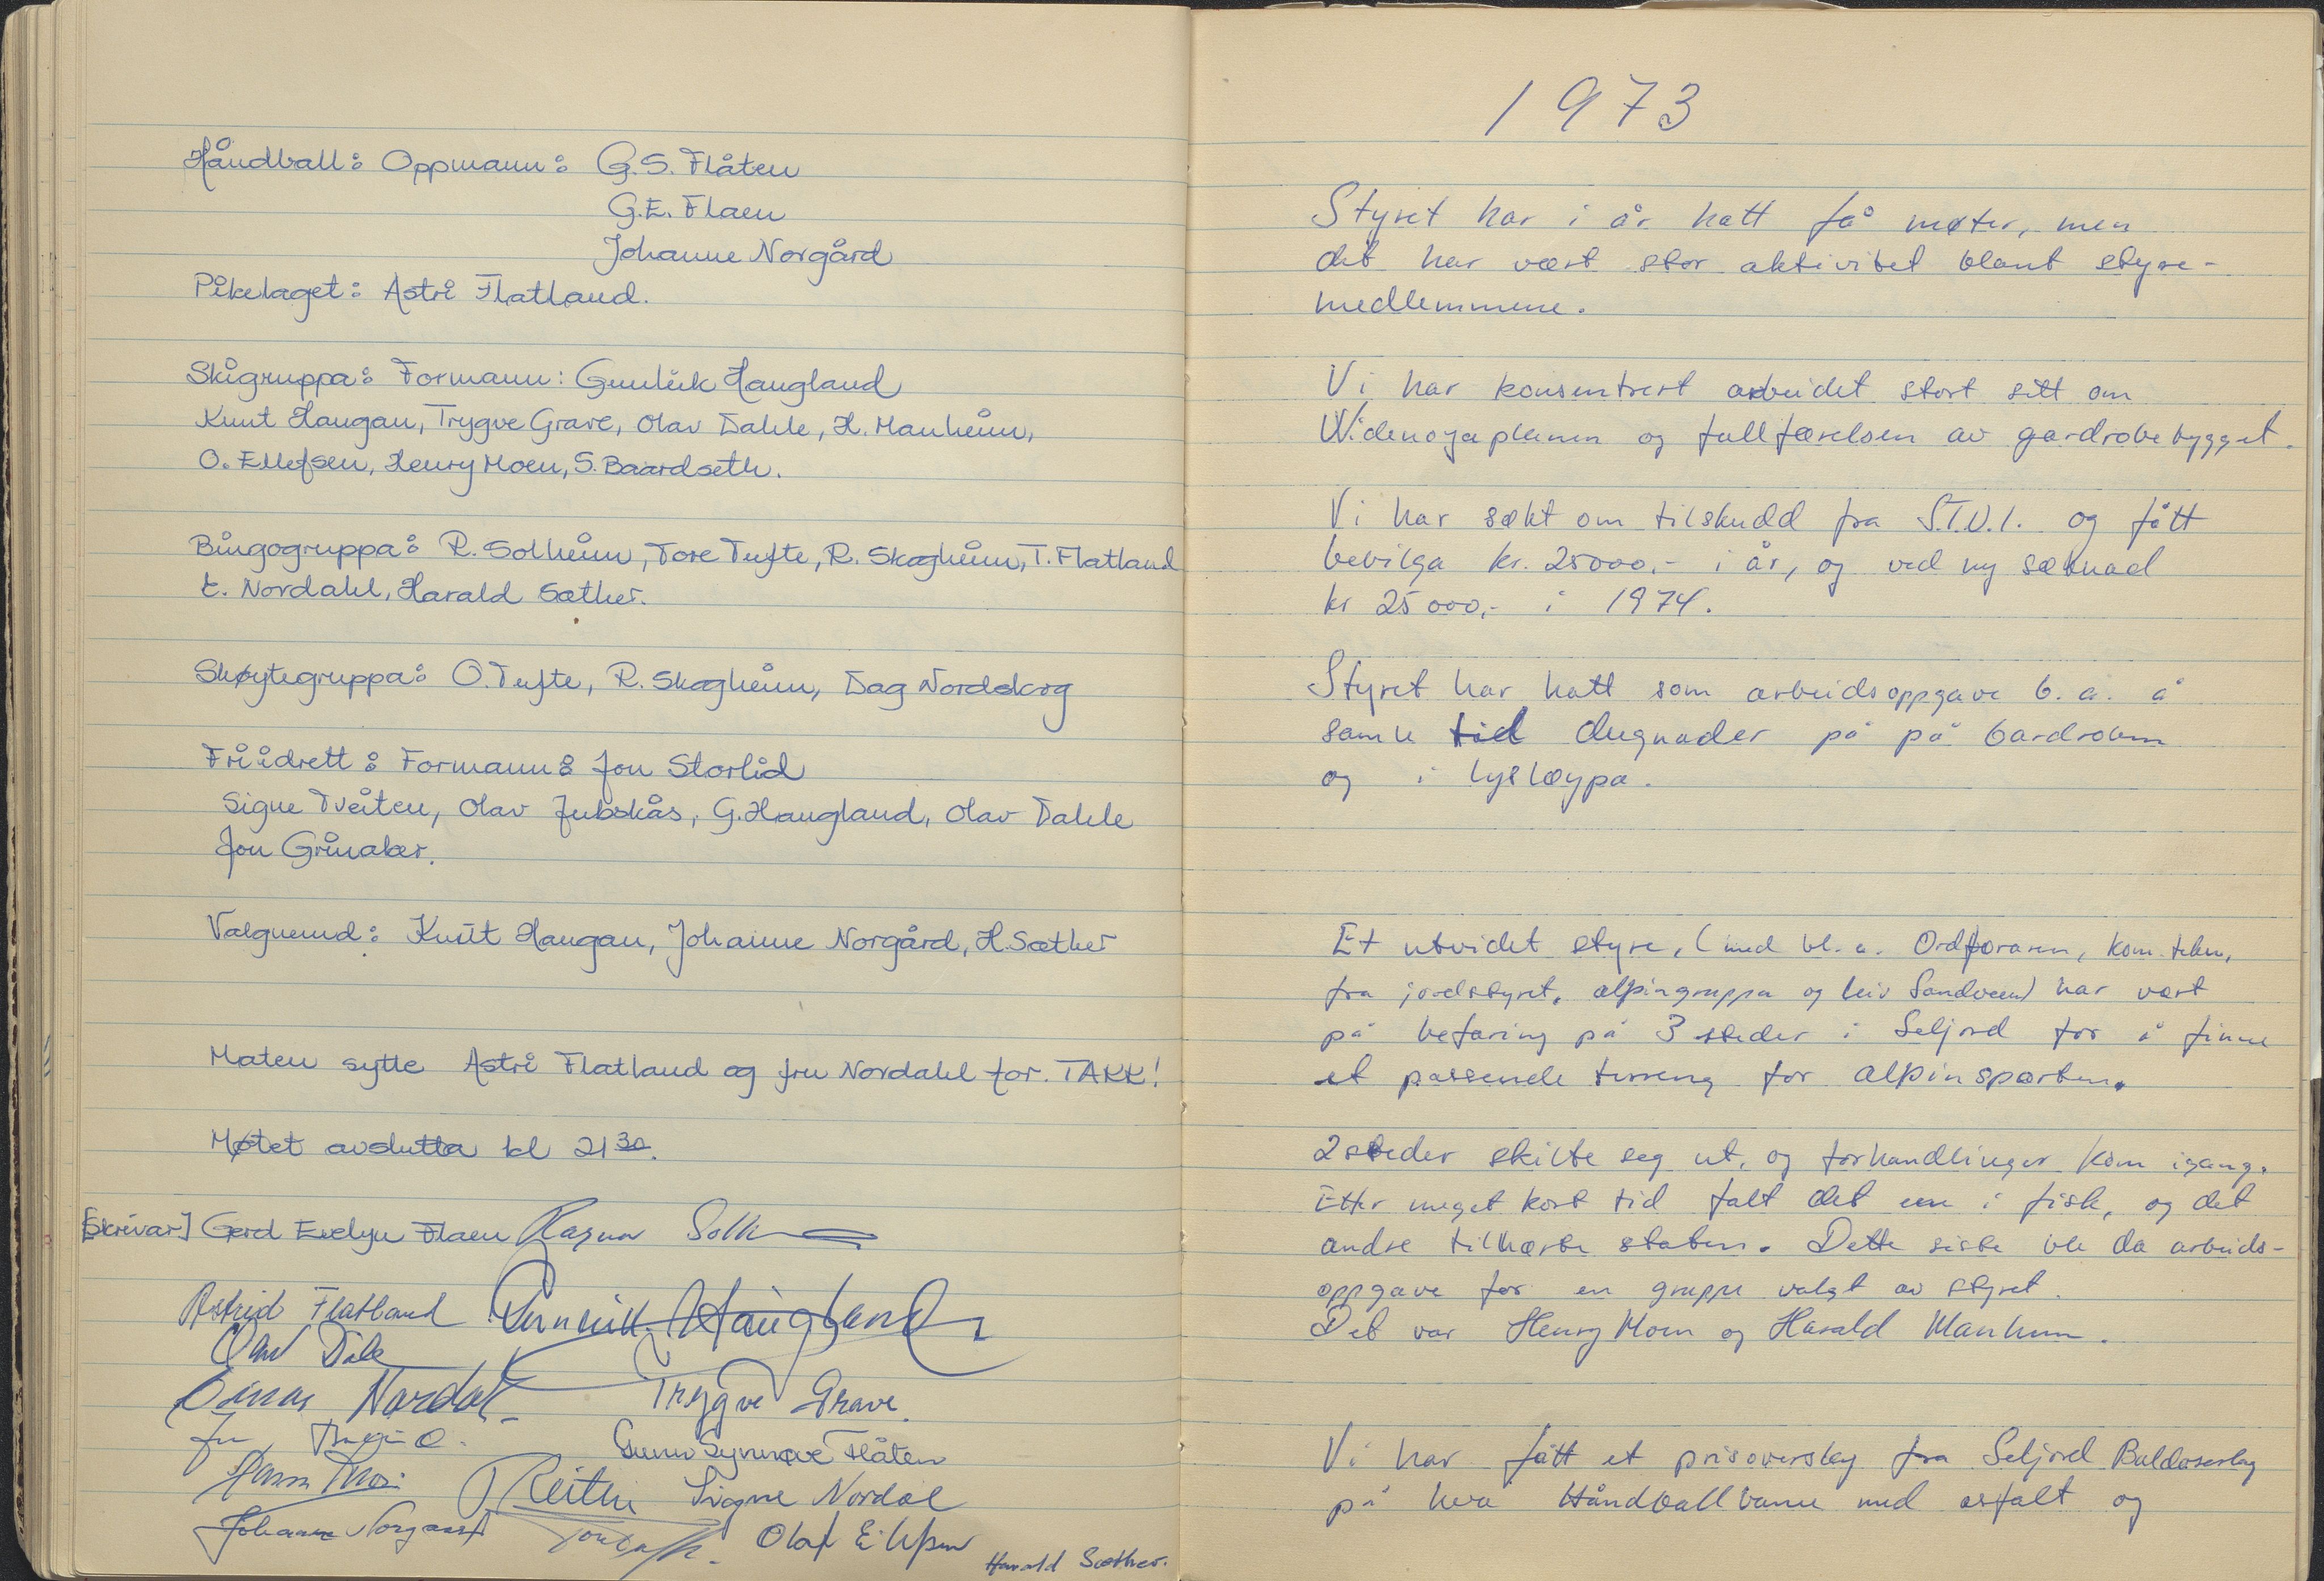 Håndball: Oppmann: G.S. Flåten
G.E. Flaen
Johanne Norgård
Pikelaget: Astri Flatland.
Skigruppa: Formann: Gunleik Haugland
Knut Haugan, Trygve Grave, Olav Dahle, H. Manheim,
O. Ellefsen, Henry Moen, S. Baardseth.
Bingogruppa: R. Solheim, Tore Tufte, R. Skogheim, T. Flatland
E. Nordahl, Harald Sæther.
Skøytegruppa: O. Tufte, R. Skogheim, Dag Nordskog
Friidrett: Formann: Jon Storlid
Signe Tveiten, Olav Jubskås, G. Haugland, Olav Dahle
Jon Grinaker.
Valgnemd: Knut Haugan, Johanne Norgård, H Sæther
Maten sytte Astri Flatland og fru Nordahl for. TAKK!
Møtet avslutta kl 21 30.
[Skrivar] Gerd Evelyn Flaen Ragnar
Astrid Flatland Gunleik Haugland
Olav Dale
Einar Nordal Trygve Grave.
Gunn Synnøve Flåten
Signe Nordal
Johanne Norgård Olaf
Harald Sæther.
1973
Styret har i år hatt få møter, men
det har vært stor aktivitet blant styre-
medlemmene.
Vi har konsentrert arbeidet stort sett om
og fullførelsen av gardrobebygget.
Vi har søkt om tilskudd fra S.T.U.I. og fått
bevilga kr. 25000,- i år, og ved ny søknad
kr 25000,- i 1974.
Styret har hatt som arbeidsoppgave b.a. å
samle til dugnader på på Gardroben
og i lysløypa.
Et utvidet styre, (med bl.a. Ordføraren, kom. tekn,
fra jordstyret, alpingruppa og Leiv Sandveen) har vært
på befaring på 3 steder i Seljord for å finne
et passende terreng for alpinsporten.
2 steder skilte seg ut, og forhandlinger kom igang.
Etter meget kort tid falt det ene i fisk, og det
andre tilhørte staten. Dette siste ble da arbeids-
oppgave for en gruppe valgt av styret.
Det var Henry Moen og Harald Manheim.
Vi har fått et prisoverslag fra Seljord Buldoserlag
på hva Håndballbane med asfalt og